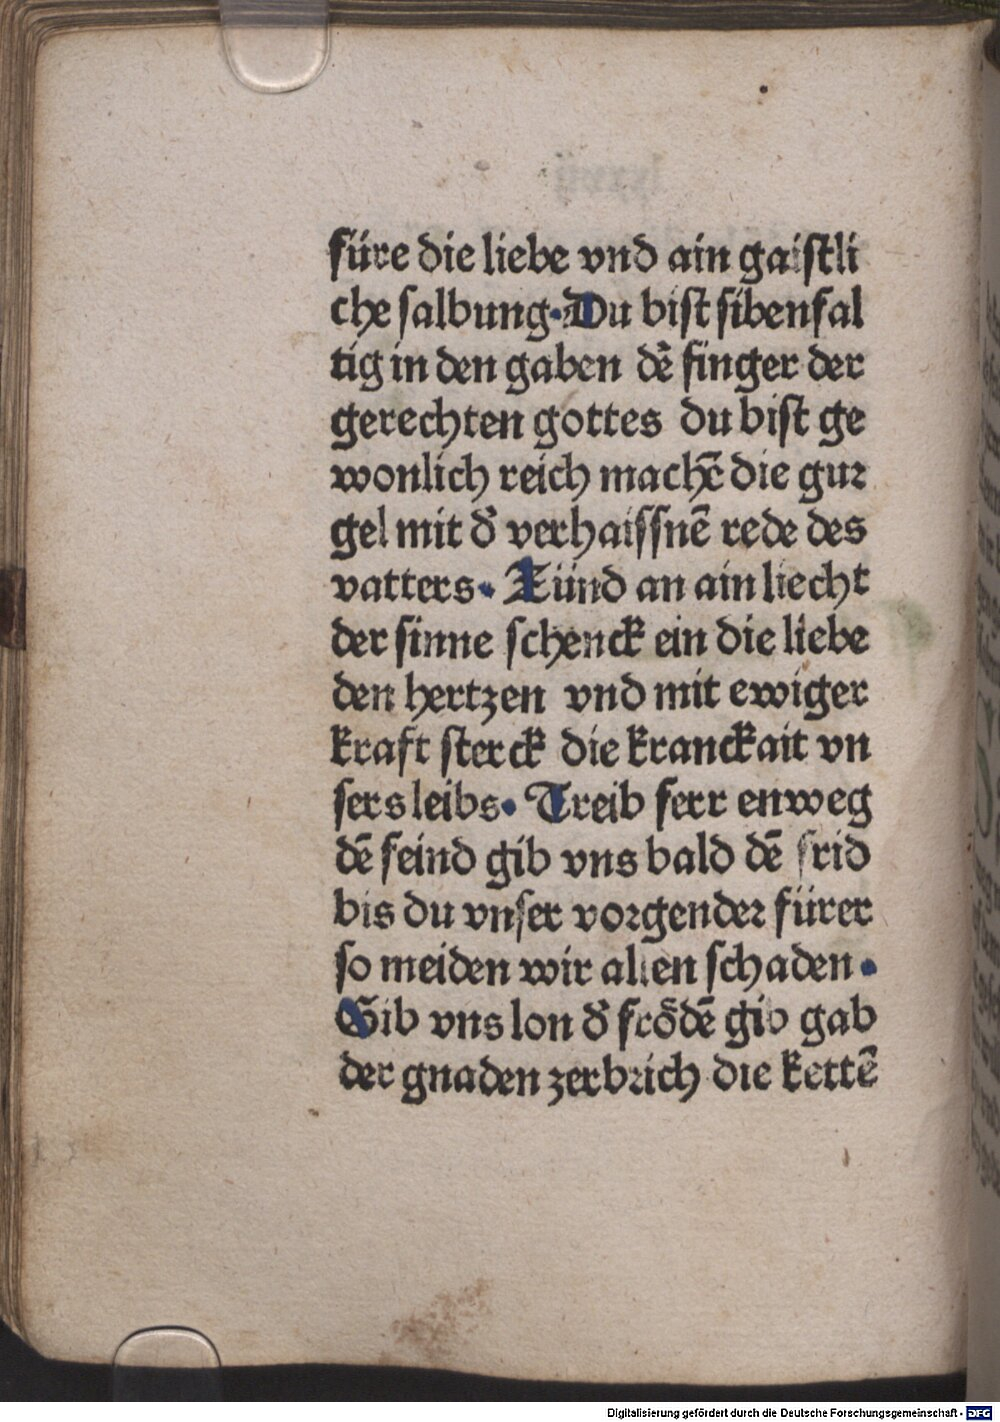 füre die liebe vnd ain gaistli
che salbung. Du bist sibenfal
tig in den gaben dē finger der
gerechten gottes du bist ge
wonlich reich machē die gur
gel mit d̕ verhaissnē rede des
vatters. Zünd an ain liecht
der sinne schenck ein die liebe
den hertzen vnd mit ewiger
kraft sterck die kranckait vn
sers leibs. Treib ferr enweg
dē feind gib vns bald dē frid
bis du vnser vorgender fürer
so meiden wir allen schaden.
Gib vns lon d̕ frödē gib gab
der gnaden zerbrich die kettē
Digitalisierung gefördert durch die Deutsche Forschungsgemeinschaft - DFG